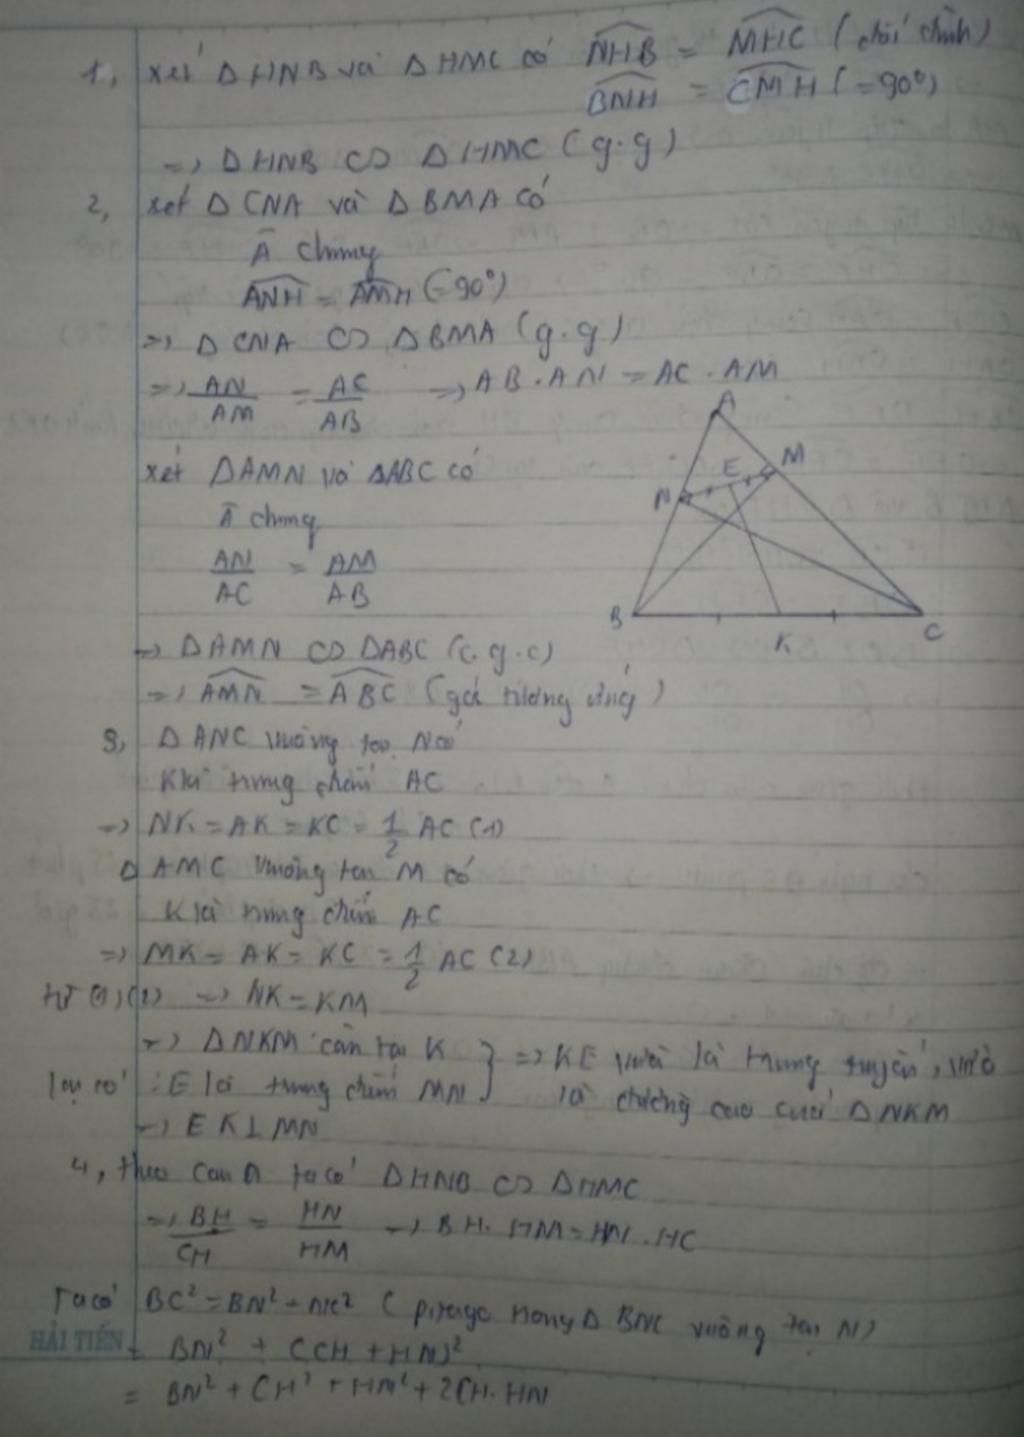 1, xét Δ HNB và Δ HMC có NHB = MHC (đối đỉnh)
BNH = CMH (=90°)
=> Δ HNB ∽ Δ HMC (g.g)
2, xét Δ CNA và Δ BMA có
A chung
ANH = AMH (=90°)
=> Δ CNA ∽ Δ BMA (g.g)
=> AN/AM = AC/AB => AB.AN = AC.AM
xét ΔAMN và ΔABC có
A chung
AN/AC = AM/AB
=> ΔAMN ∽ ΔABC (c.g.c)
=> AMN = ABC (góc tương ứng)
A
M
E
N
B
K
C
3, Δ ANC vuông tại N có
K là trung điểm AC
=> NK = AK = KC = 1/2 AC (1)
Δ AMC vuông tại M có
K là trung điểm AC
=> MK = AK = KC = 1/2 AC (2)
từ (1),(2) => NK = KM
=> Δ NKM cân tại K } => KE vừa là trung tuyến, vừa
lại có : E là trung điểm MN } là đường cao của Δ NKM
=> EK⊥MN
4, theo câu a ta có ΔHNB ∽ ΔHMC
=> BH/CH = HN/HM => BH.HM = HN.HC
Ta có BC² = BN² + NC² (pitago trong Δ BNC vuông tại N)
HẢI TIẾN = BN² + (CH + HN)²
= BN² + CH² + HN² + 2CH.HN